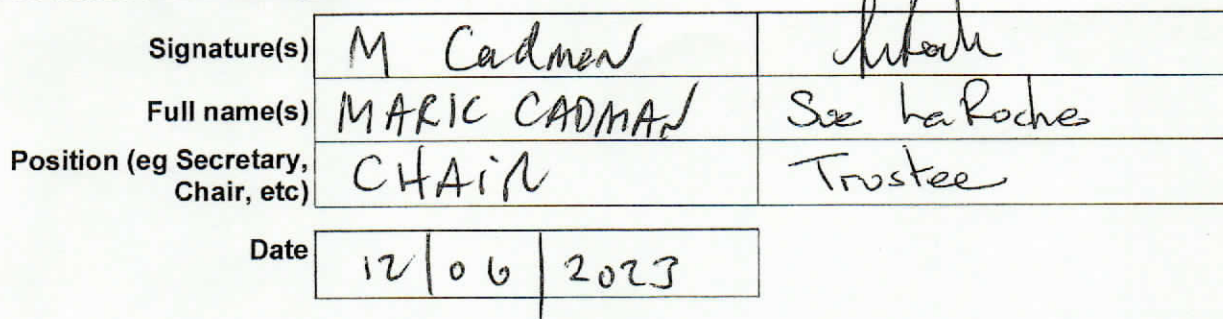 Signature(s) M Cadman
Full name(s) MARIC CADMAN Sue LaRoche
Position (eg Secretary, CHAIR Trustee
Chair, etc)
Date 12/06/2023